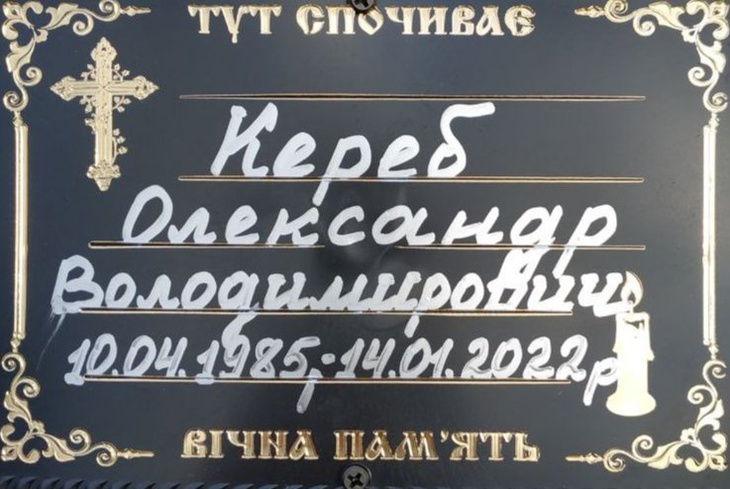 ТУТ СПОЧИВАЄ
Кереб
Олександр
Володимирович
10.04.1985,-14.01.2022р
ВІЧНА ПАМ'ЯТЬ